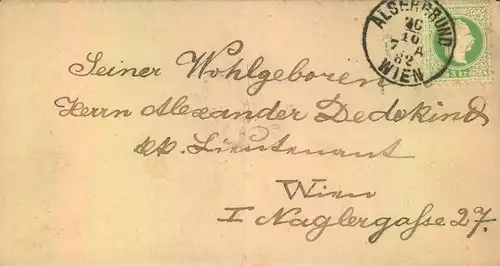 ALSERGRUND
26
10
7 A
82
WIEN
3 kr.
Seiner Wohlgeboren
Herrn Alexander Dedekind
kk. Lieutenant
Wien
I Naglergasse 27.